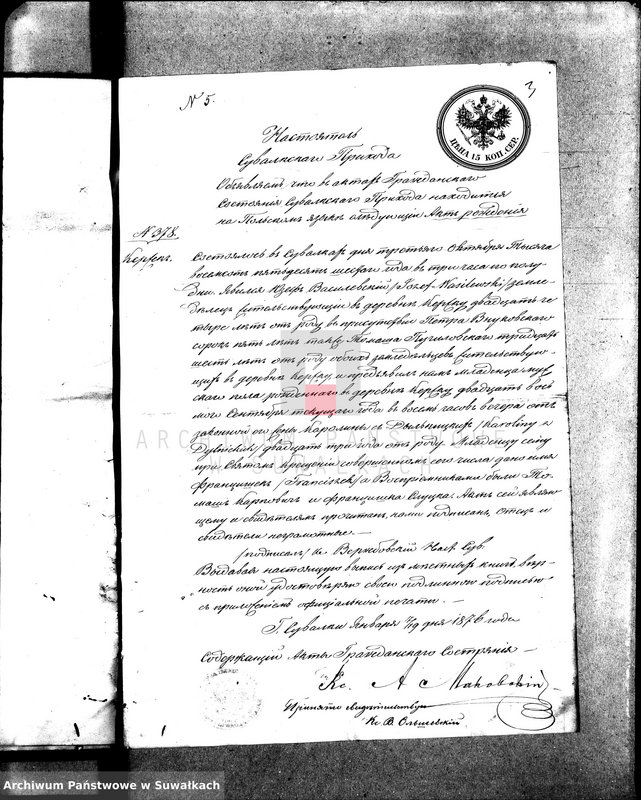 № 5.
3
ЦѢНА 15 КОП. СЕР.
Настоятель
Сувалкскаго Прихода
Объявляемъ, что въ актахъ Гражданскаго
Состоянія Сувалкскаго Прихода находится
на Польскомъ языкѣ слѣдующій Актъ рожденія
№ 378.
Состоялось въ Сувалкахъ дня третьяго Октября тысяча
восемьсотъ пятьдесятъ шестаго года въ три часа по полу
дни. Явился Юзефъ Василевскій /Józef Wasilewski/ земле
дѣлецъ жительствующій въ деревнѣ двадцать че
тыре лѣтъ отъ роду въ присутствіи Петра
сорокъ пять лѣтъ также Томаша тридцать
шесть лѣтъ отъ роду обоихъ земледѣльцевъ жительствую
щихъ въ деревнѣ и предъявилъ намъ младенца муж
скаго пола рожденнаго въ деревнѣ двадцать вось
мого Сентября текущаго года въ восемь часовъ вечера отъ
законной его жены Каролины съ /Karoliny z
двадцать три года отъ роду. Младенцу сему
при Святомъ Крещеніи совершенномъ сего числа дано имя
Францишекъ /Franciszek/ а Воспріемниками были То
машъ и Францишка Актъ сей являю
щему и свидѣтелямъ прочитанъ, нами подписанъ, отецъ и
свидѣтели неграмотные. —
/подписалъ/ Кс.
Выдавая настоящую выпись изъ книгъ, вѣр
ность оной удостовѣряю своею подлинною подписью
съ приложеніемъ оффиціальной печати. —
Г. Сувалки Января дня 1876 года
Содержащій Акты Гражданскаго Состоянія —
Кс. А
Кс. В. Ольшевскій
ARCHIWUM PAŃSTWOWE
W SUWAŁKACH
Archiwum Państwowe w Suwałkach